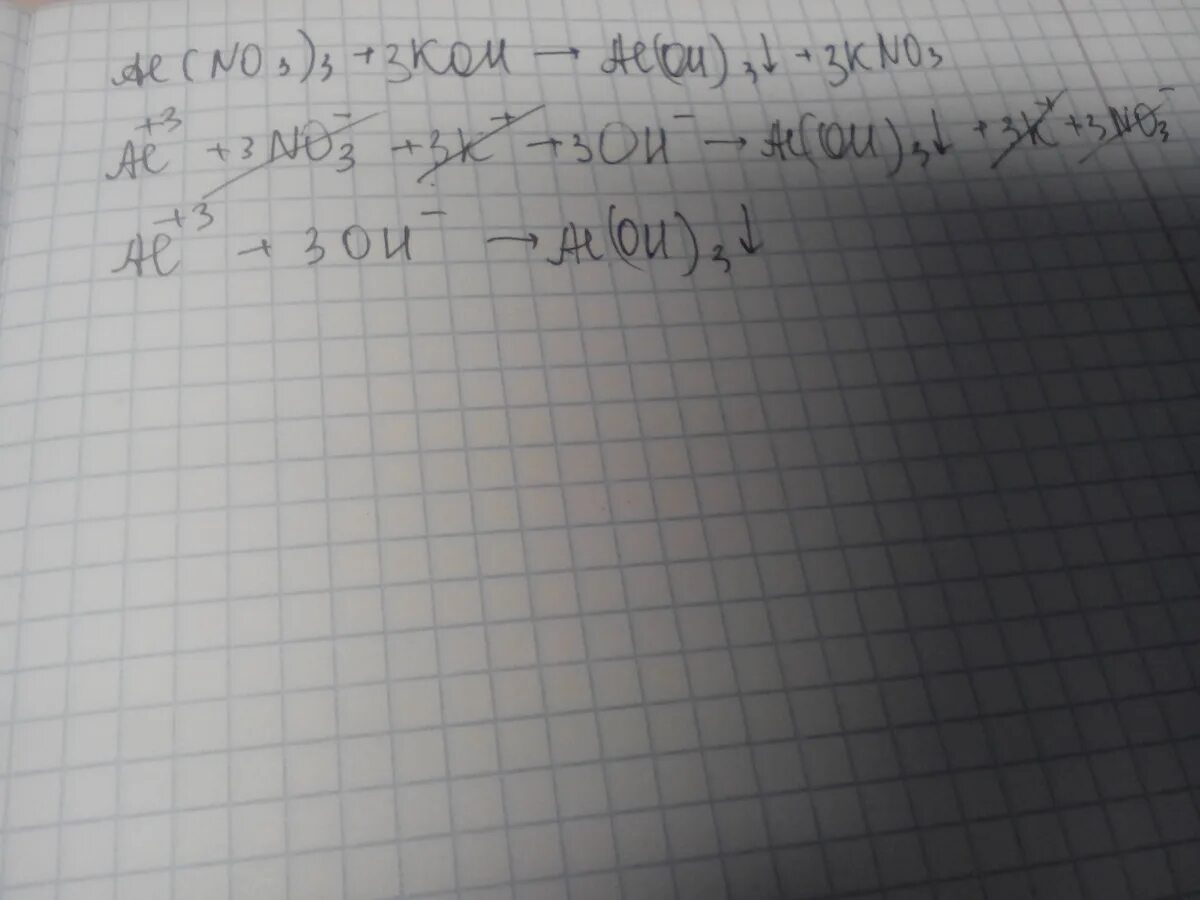 Al(NO₃)₃ + 3KOH → Al(OH)₃↓ + 3KNO₃
Al⁺³ + 3NO₃⁻ + 3K⁺ + 3OH⁻ → Al(OH)₃↓ + 3K⁺ + 3NO₃⁻
Al⁺³ + 3OH⁻ → Al(OH)₃↓